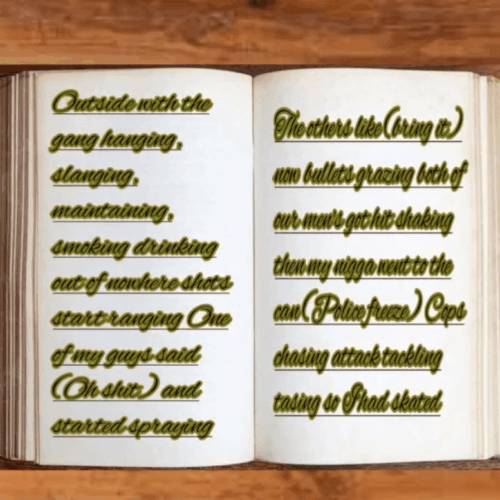 Outside with the
gang hanging,
slanging,
maintaining,
smoking drinking
out of nowhere shots
start ranging One
of my guys said
(Oh shit,) and
started spraying
The others like (bring it)
now bullets grazing both of
our men's got hit shaking
then my nigga went to the
can (Police freeze) Cops
chasing attack tackling
tasing so I had skated